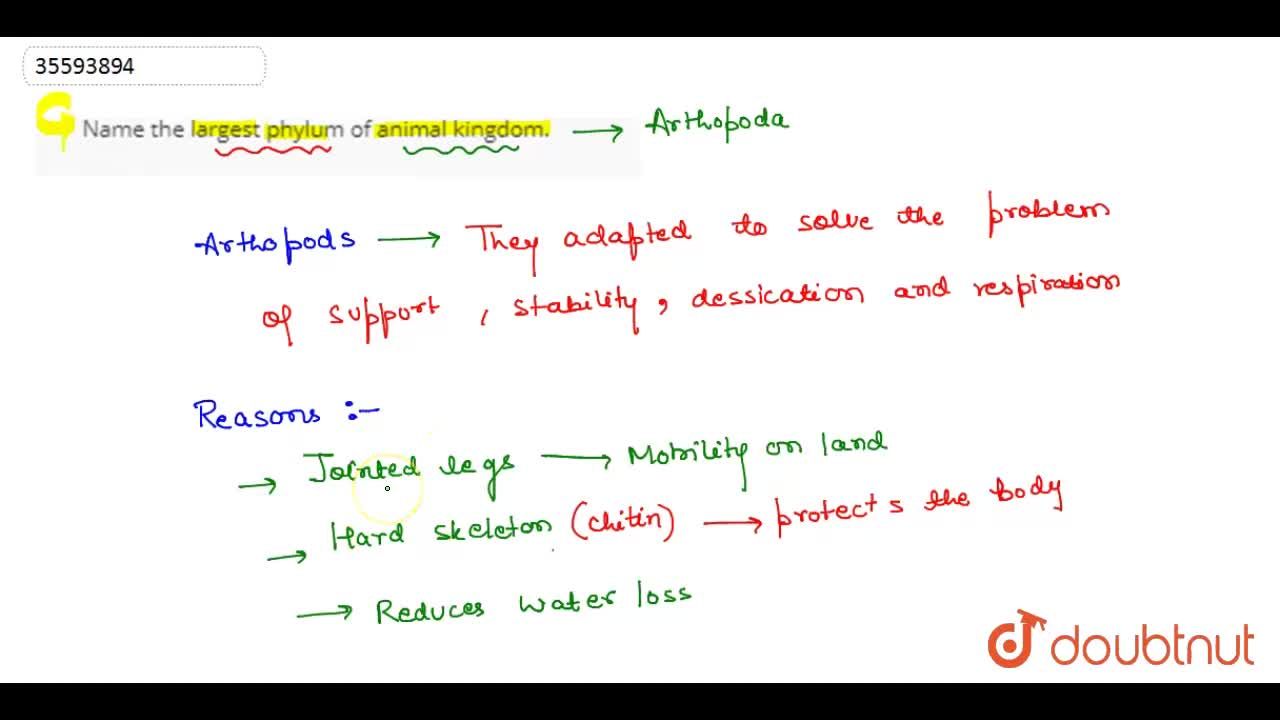 35593894
Name the largest phylum of animal kingdom. → Arthopoda
Arthopods → They adapted to solve the problem
of support, stability, dessication and respiration
Reasons :-
→ Jointed legs → Mobility on land
→ Hard skeleton (chitin) → protects the body
→ Reduces water loss
doubtnut